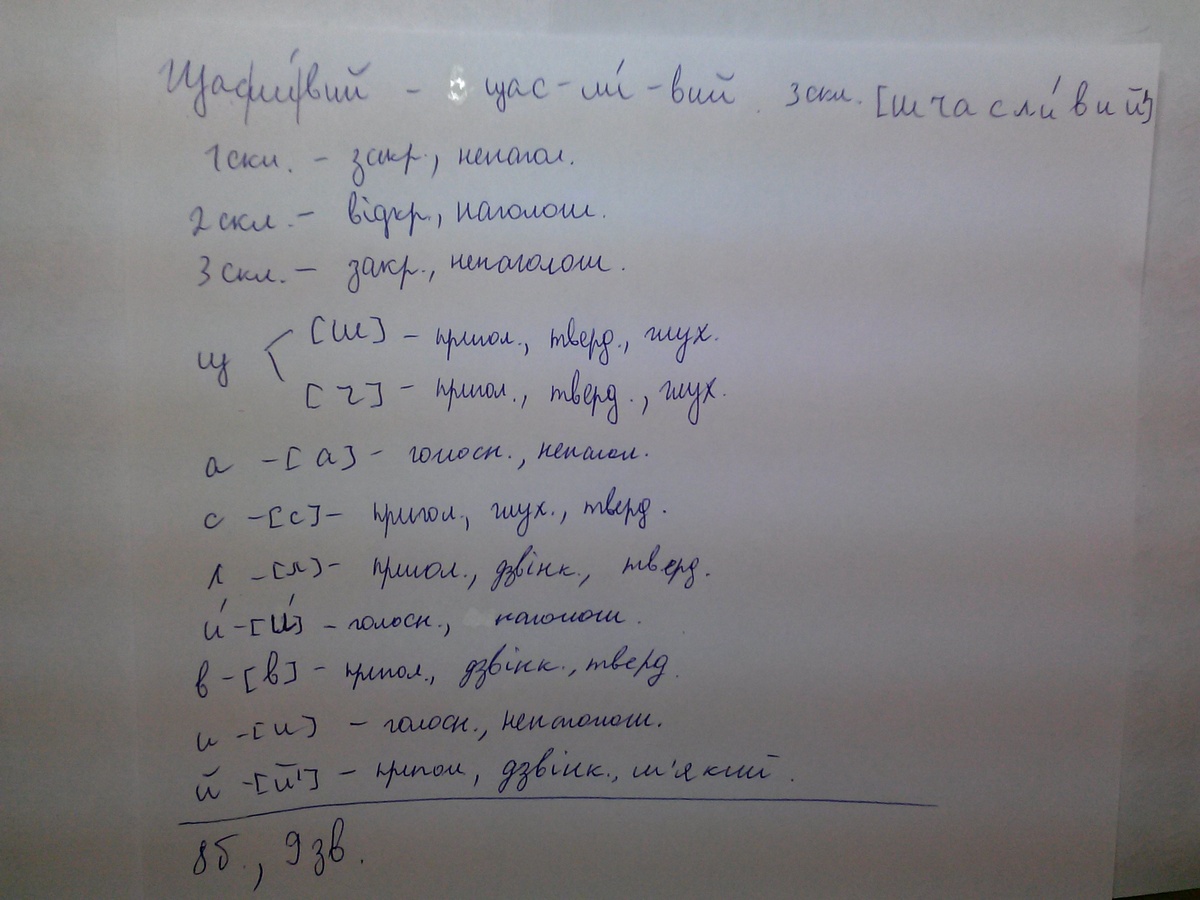 Щасли́вий - щас-ли́-вий. 3 скл. [шчасли́вий']
1 скл. - закр., ненагол.
2 скл. - відкр., наголош.
3 скл. - закр., ненаголош.
щ < [ш] - пригол., тверд., глух.
[ч] - пригол., тверд., глух.
а - [а] - голосн., ненагол.
с - [с] - пригол., глух., тверд.
л - [л] - пригол., дзвінк., тверд.
и́ - [и́] - голосн., наголош.
в - [в] - пригол., дзвінк., тверд.
и - [и] - голосн., ненаголош.
й - [й'] - пригол, дзвінк., м'який.
8б., 9зв.